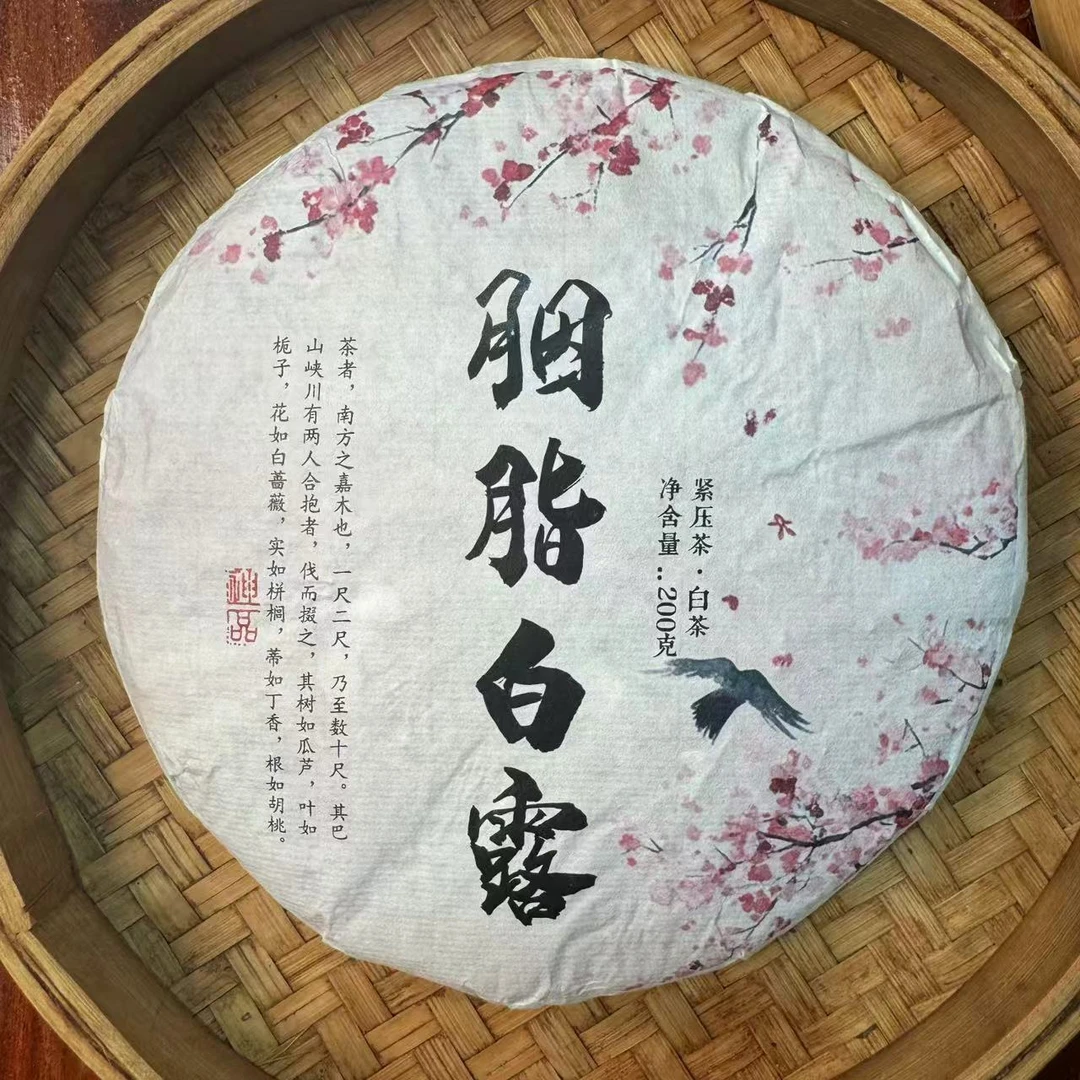 紧压茶·白茶
净含量:200克
胭脂白露
茶者，南方之嘉木也，一尺二尺，乃至数十尺。其巴
山峡川有两人合抱者，伐而掇之，其树如瓜芦，叶如
栀子，花如白蔷薇，实如栟榈，蒂如丁香，根如胡桃。